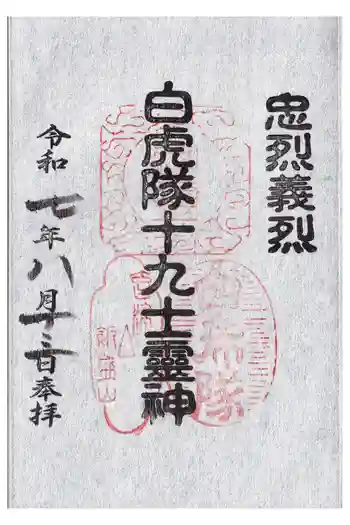 忠烈義烈
白虎隊十九士靈神
令和七年八月十三日奉拝
飯盛山
白虎隊